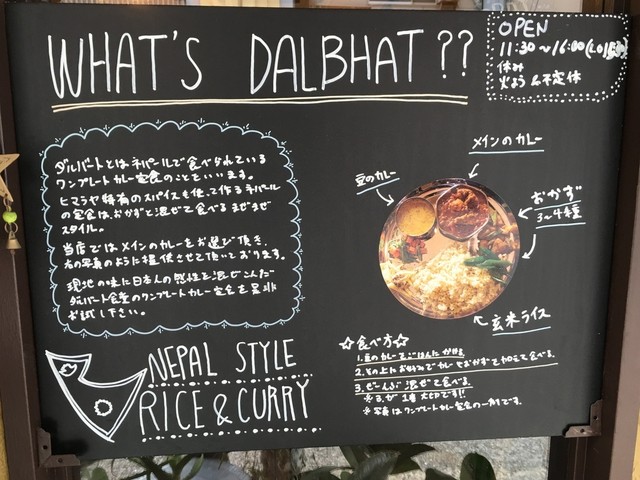 WHAT'S DALBHAT??
OPEN
11:30〜16:00
休み
火よう&不定休
ダルバートとはネパールで食べられている
ワンプレートカレー定食のことをいいます。
ヒマラヤ特有のスパイスも使って作るネパール
の定食は、おかずと混ぜて食べるまぜまぜ
スタイル。
当店ではメインのカレーをお選び頂き、
右の写真のように提供させて頂いております。
現地の味に日本人の感性を混ぜこんだ
ダルバート食堂のワンプレートカレー定食を是非
お試し下さい。
メインのカレー
豆のカレー
おかず
3〜4種
玄米ライス
☆食べ方☆
1.豆のカレーをごはんにかける
2.その上にお好みでカレーやおかずを加えて食べる。
3.ぜーんぶ混ぜて食べる。
※3.が1番大切です!!
※写真はワンプレートカレー定食の一例です。
NEPAL STYLE
RICE & CURRY